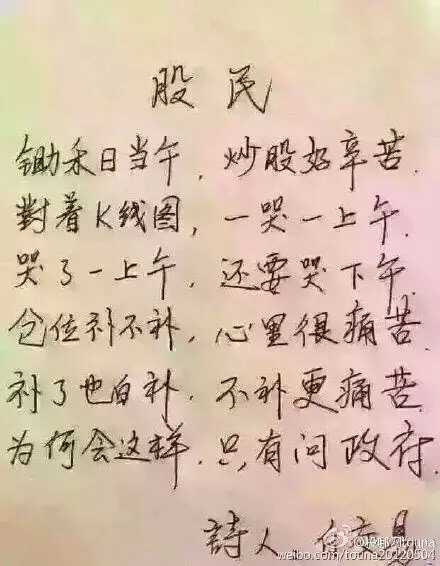 股民
锄禾日当午，炒股好辛苦.
對着K线图，一哭一上午.
哭了一上午，还要哭下午.
仓位补不补，心里很痛苦.
补了也白补，不补更痛苦.
为何会这样，只有问政府.
詩人
weibo.com/touna20220504